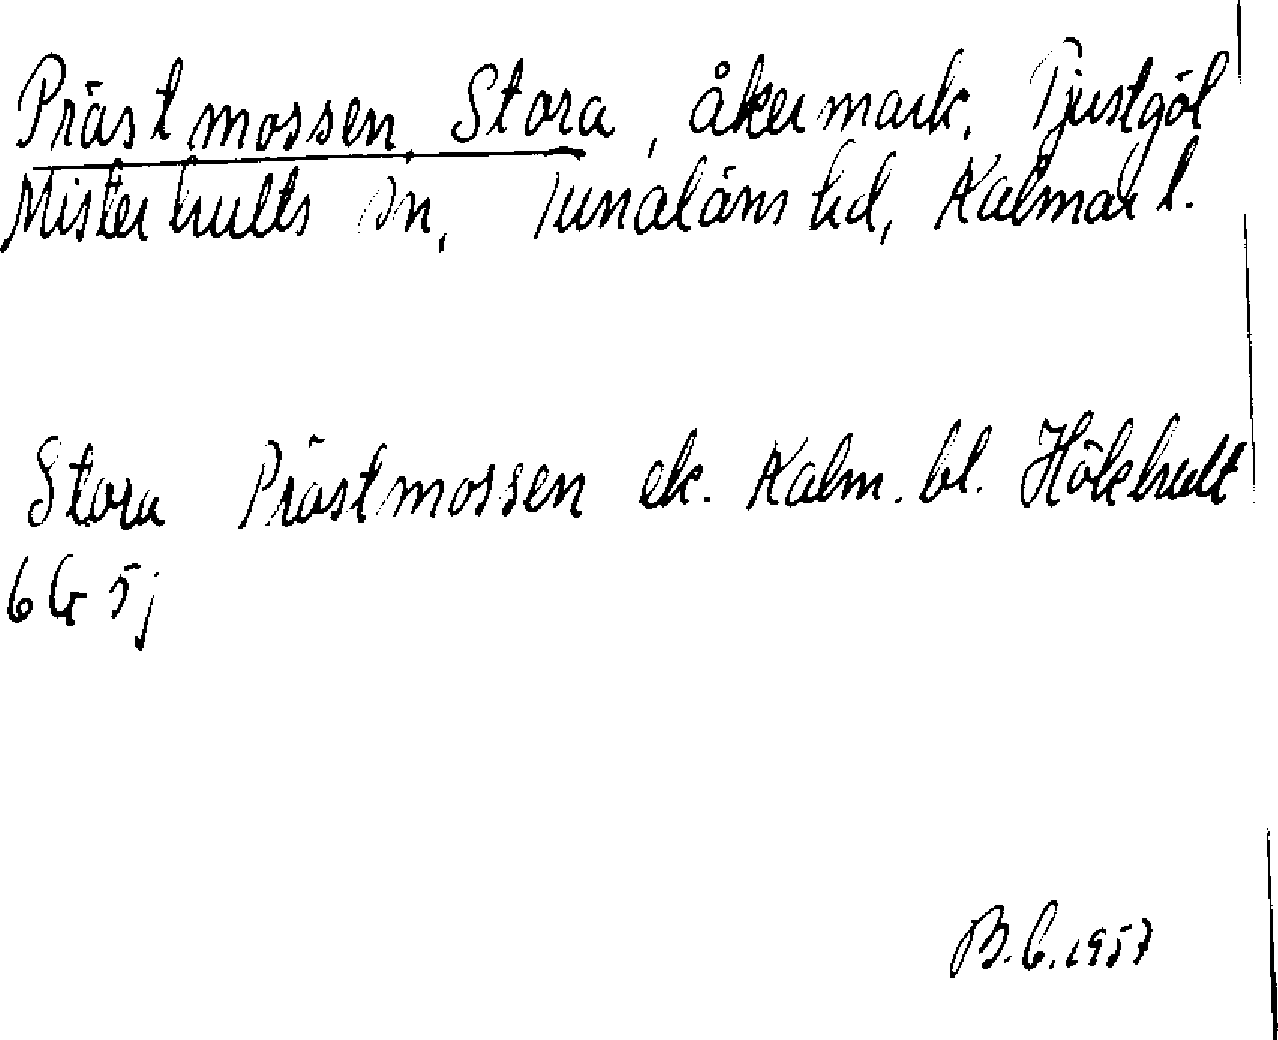 Prästmossen, Stora, åkermark, Tjustgöl
Misterhults sn, Tunaläns hd, Kalmar l.
Stora Prästmossen ek. Kalm. bl. Hökhult
6 G 5j
B.C. 1957